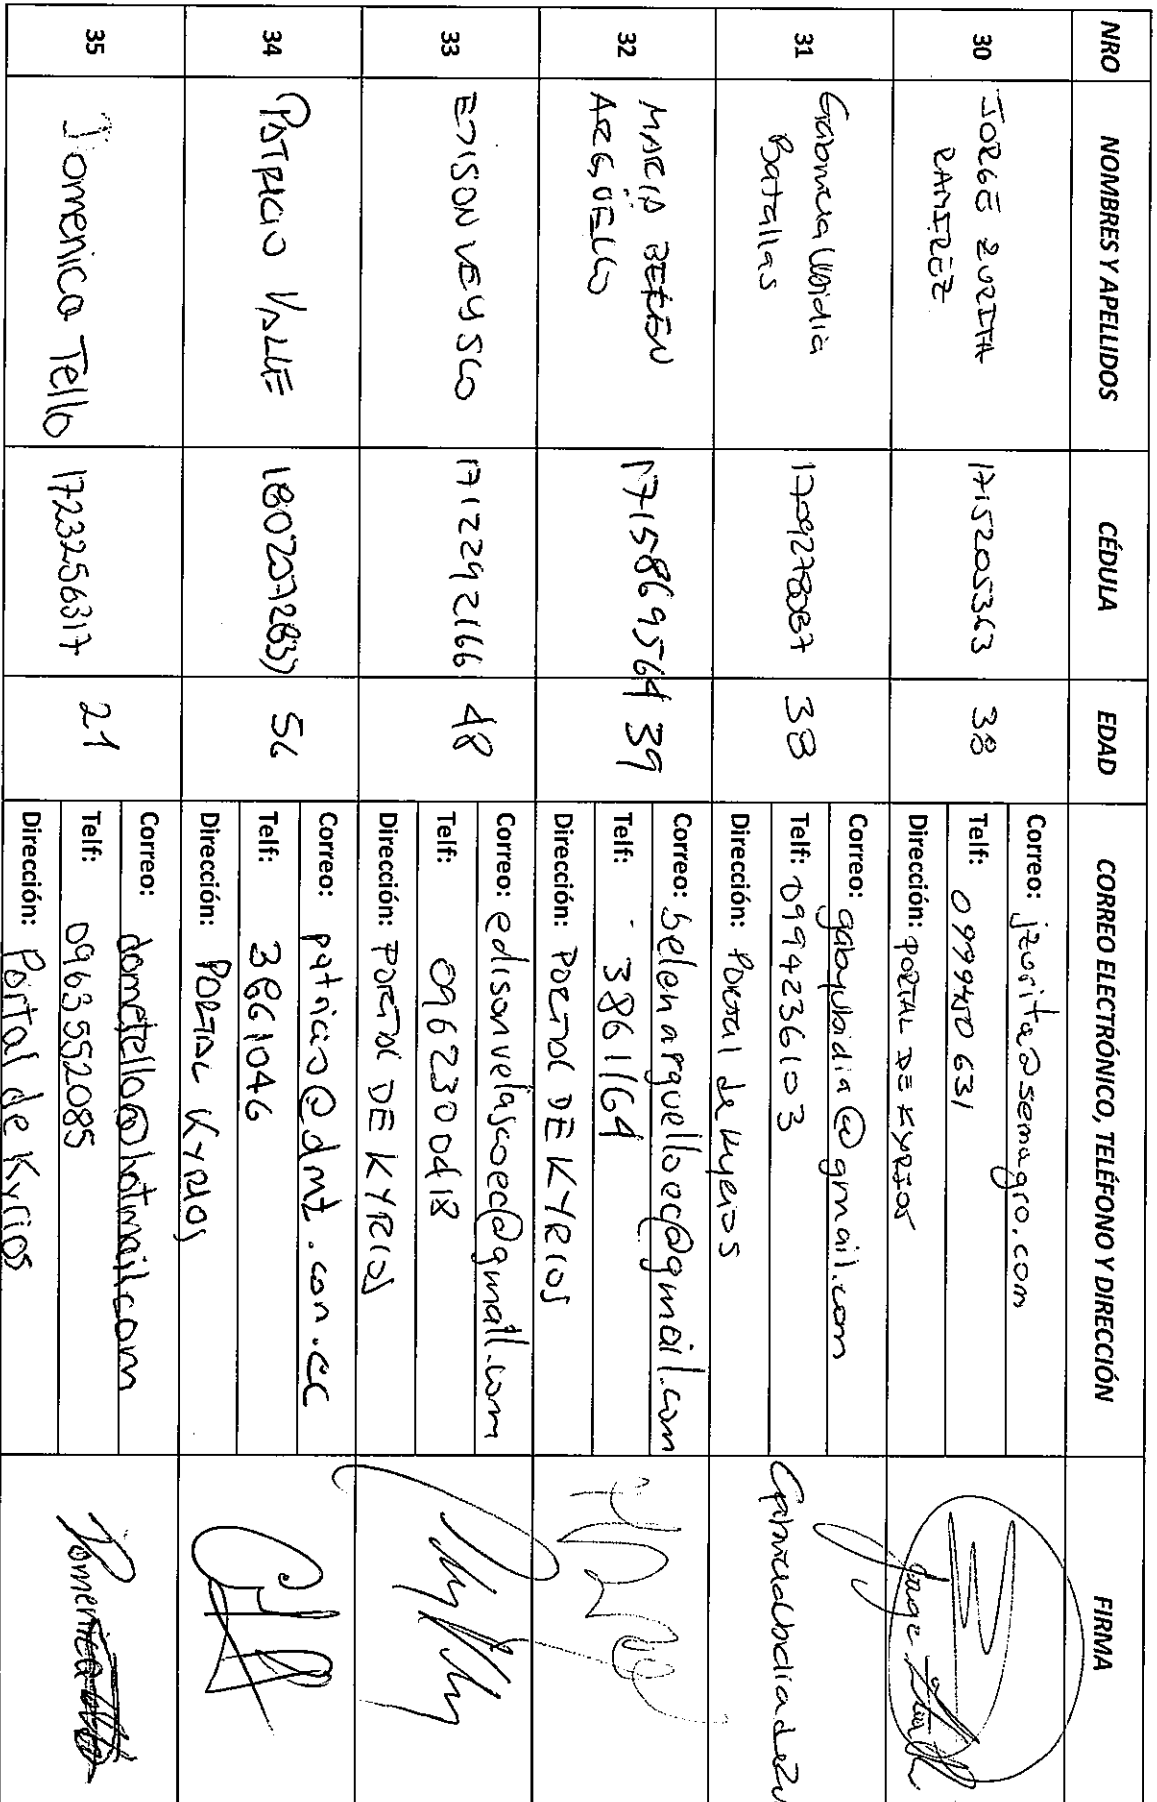 NRO NOMBRES Y APELLIDOS CÉDULA EDAD CORREO ELECTRÓNICO, TELÉFONO Y DIRECCIÓN FIRMA
30 JORGE ZURITA
RAMIREZ
1715205363 38
Correo: jzurita@semagro.com
Telf: 0999450631
Dirección: PORTAL DE KYRIOS
Jorge
31 Gabriela Ubidia
Batallas
1709278087 38
Correo: gabyubidia@gmail.com
Telf: 0994236103
Dirección: Portal de Kyrios
32 MARIA BELEN
ARGUELLO
1715869564 39
Correo: belenarguelloec@gmail.com
Telf: 3861164
Dirección: PORTAL DE KYRIOS
33 EDISON VELASCO
1712292166 48
Correo: edisonvelascoec@gmail.com
Telf: 0962300418
Dirección: PORTAL DE KYRIOS
34 PATRICIO VALLE
56
Correo: patricio@dmt.com.ec
Telf: 3861046
Dirección: PORTAL KYRIOS
35 Domenica Tello
1723256317 21
Correo: dometello@hotmail.com
Telf: 0963552085
Dirección: Portal de Kyrios
Domenica